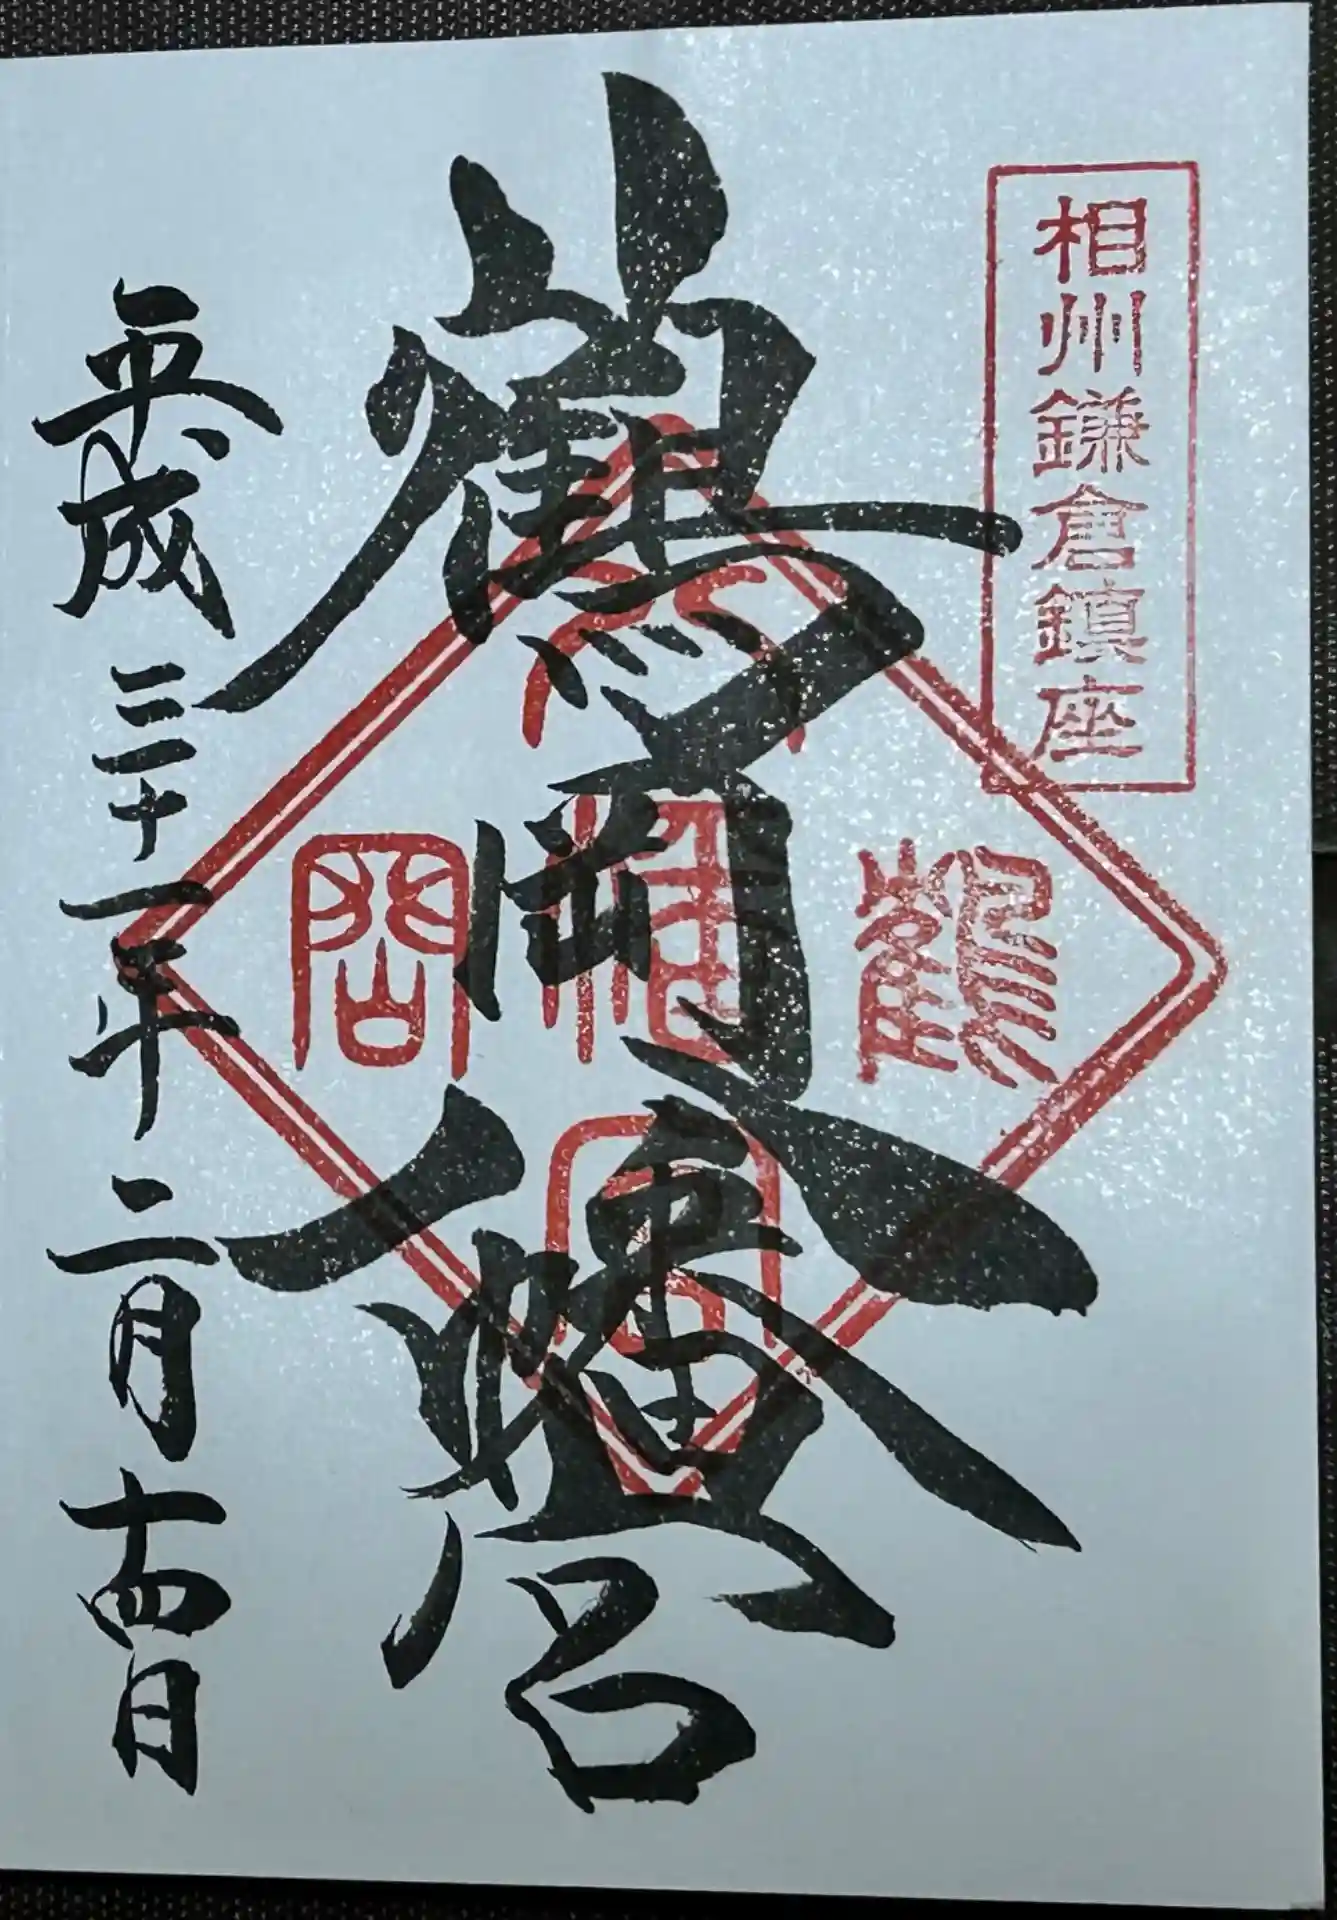 相州鎌倉鎮座
鶴岡八幡宮
鶴
岡
八
幡
宮
平成三十一年二月十四日